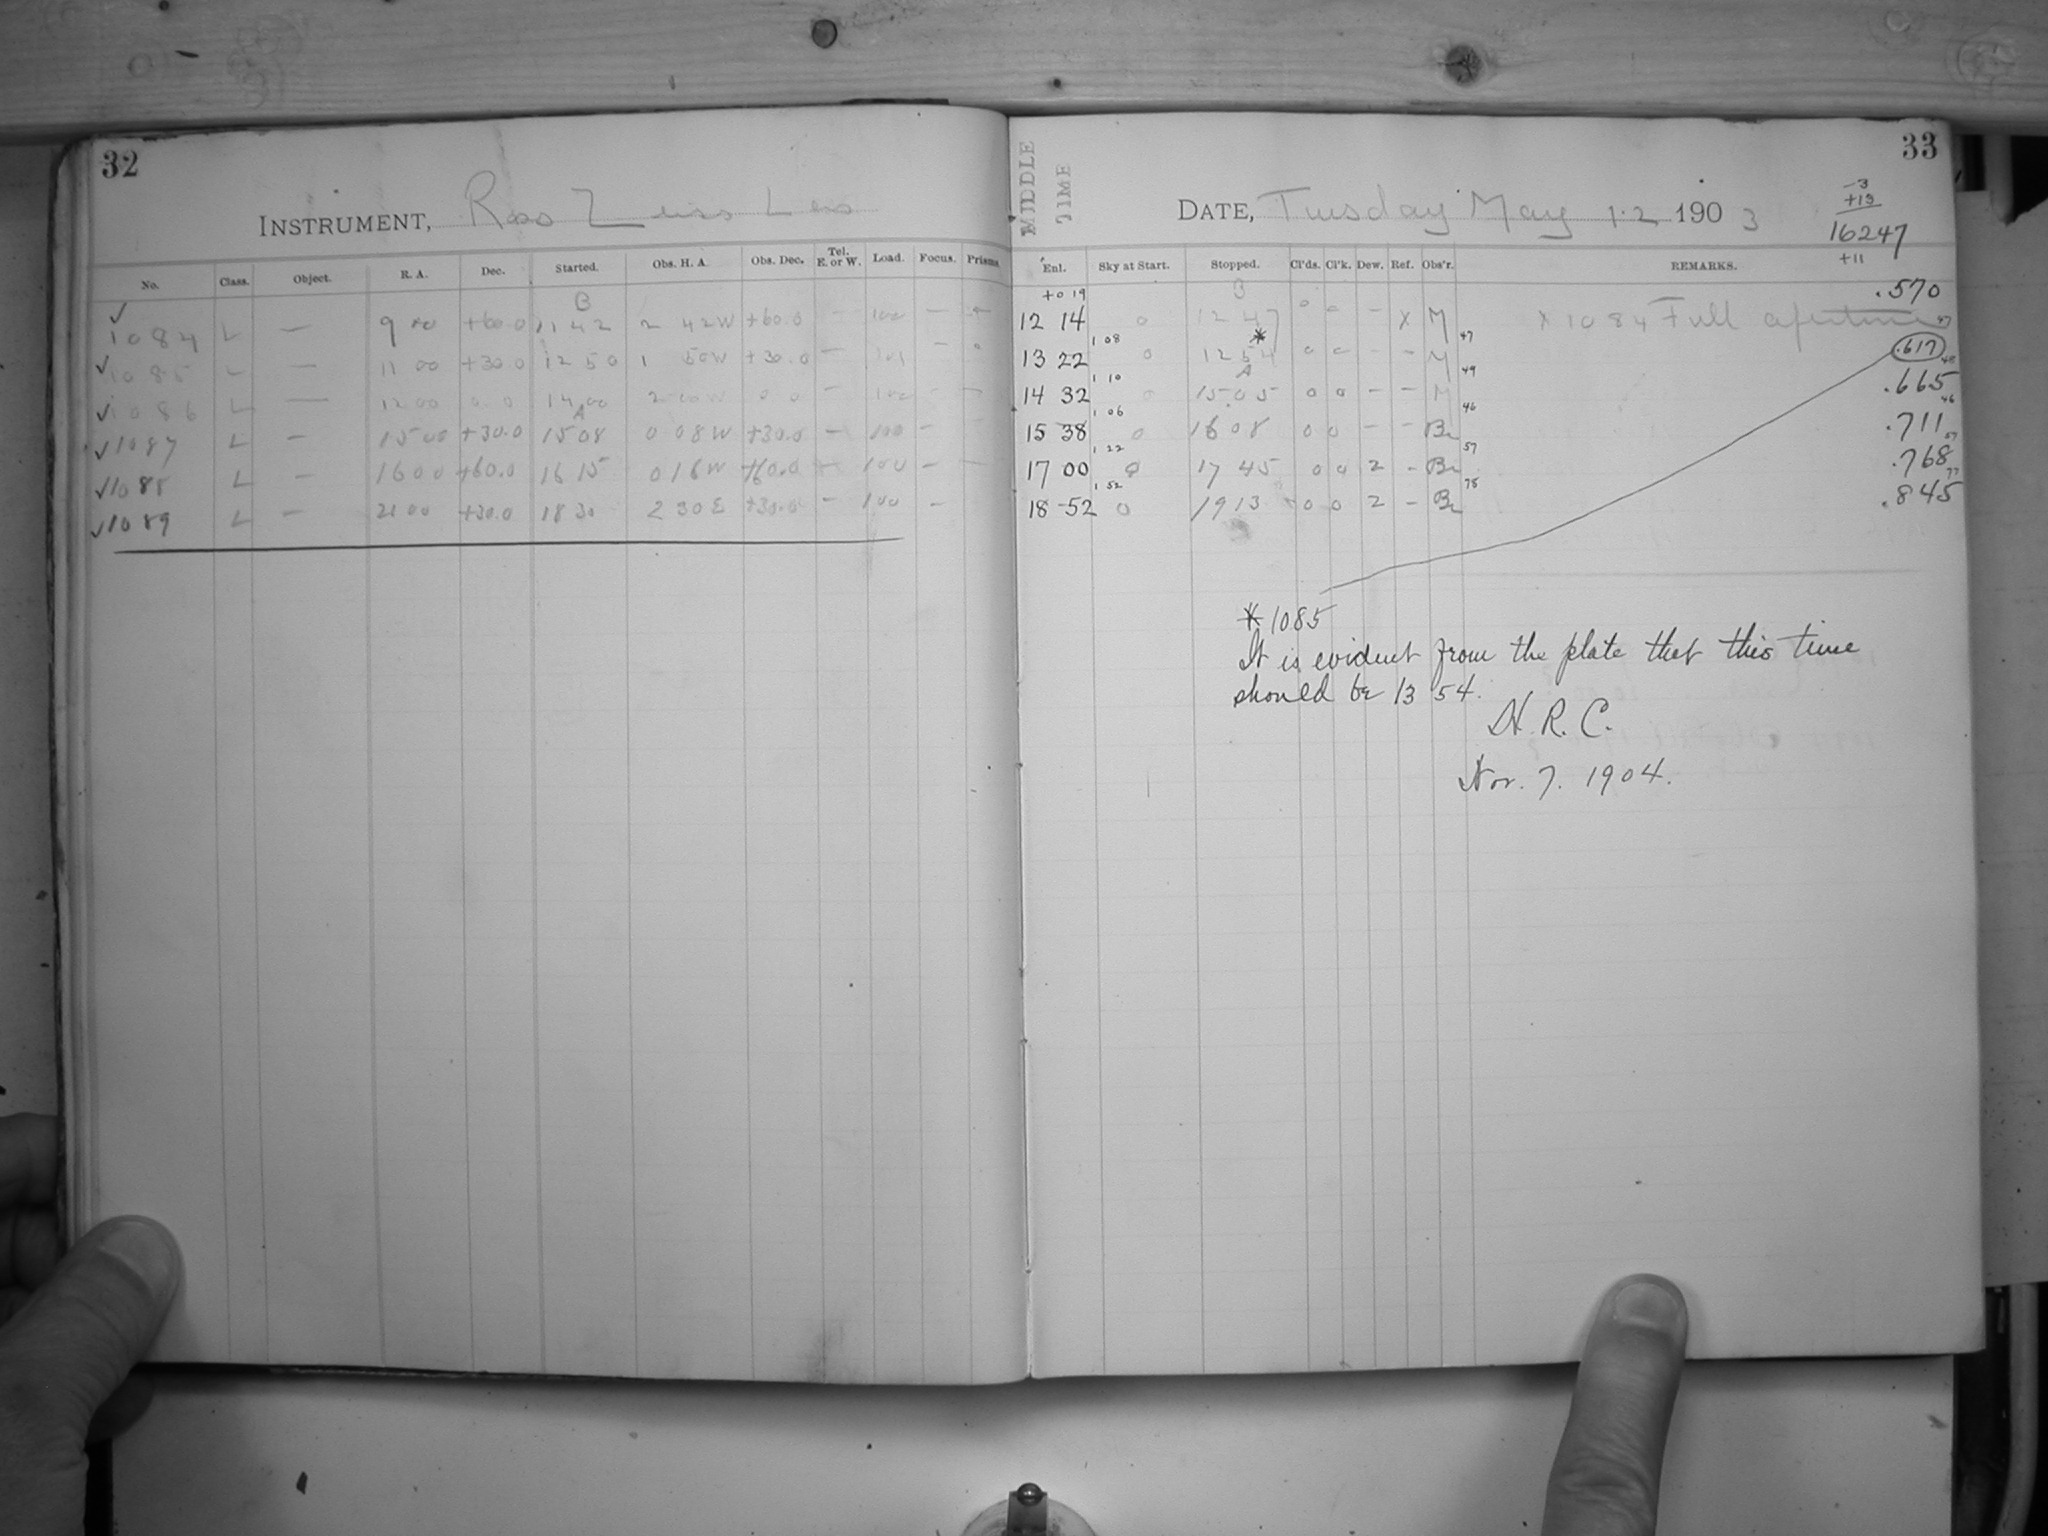 32
INSTRUMENT, Ross Zeiss Lens
No. Class. Object. R. A. Dec. Started. Obs. H. A. Obs. Dec. Tel. E. or W. Load. Focus. Prisms.
B
✓ 1084 L — 9 00 +60.0 11 42 2 42W +60.0 — 100 — —
✓ 1085 L — 11 00 +30.0 12 50 1 50W +30.0 — 101 —
✓ 1086 L — 12 00 0.0 14 00 2 00W 0 0 — 100 — —
A
✓ 1087 L — 15 00 +30.0 15 08 0 08W +30.0 — 100 — —
✓ 1088 L — 16 00 +60.0 16 15 0 16W +60.0 — 100 — —
✓ 1089 L — 21 00 +30.0 18 30 2 30E +30.0 — 100 —
MIDDLE TIME
33
DATE, Tuesday May 12 1903
-3
+13
16247
+11
Enl. Sky at Start. Stopped. Cl'ds. Cl'k. Dew. Ref. Obs'r. REMARKS.
+0 19 .570
12 14 0 12 47 0 0 — X M X 1084 Full aperture 47
1 08 * 47
13 22 0 12 54 0 0 — — M .617 48
1 10 A 49
14 32 0 15 05 0 0 — — M .665 46
1 06 46
15 38 0 16 08 0 0 — — Br .711 57
1 22 57
17 00 0 17 45 0 0 2 — Br .768 77
1 52 78
18 52 0 19 13 0 0 2 — Br .845
* 1085
It is evident from the plate that this time
should be 13 54.
H. R. C.
Nov. 7. 1904.